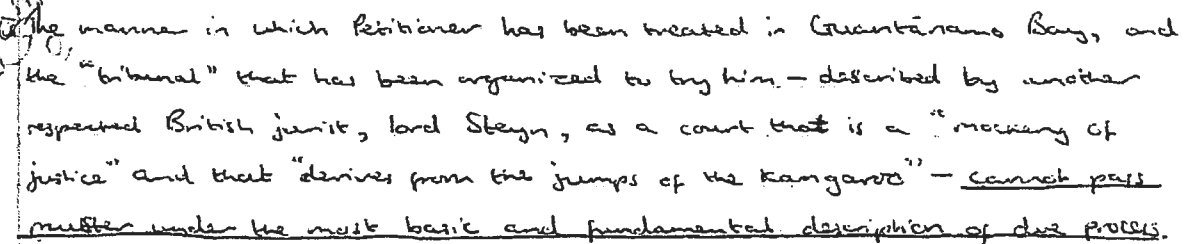 The manner in which Petitioner has been treated in Guantánamo Bay, and
the "tribunal" that has been organized to try him – described by another
respected British jurist, lord Steyn, as a court that is a "mockery of
justice" and that "derives from the jumps of the kangaroo" – cannot pass
muster under the most basic and fundamental description of due process.